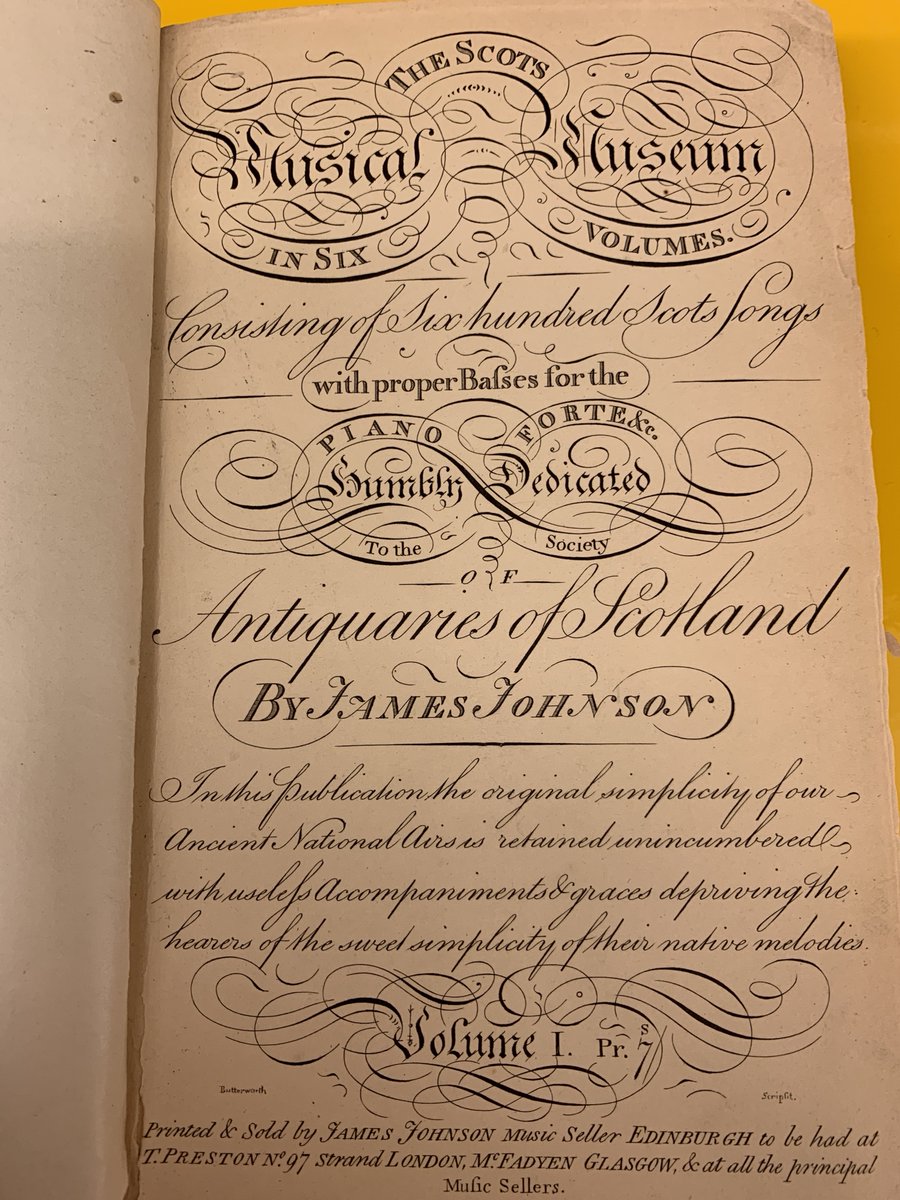 THE SCOTS
Musical Museum
IN SIX VOLUMES.
Consisting of Six hundred Scots Songs
with proper Baſses for the
PIANO FORTE &c.
Humbly Dedicated
To the Society
OF
Antiquaries of Scotland
BY JAMES JOHNSON
In this Publication the original simplicity of our
Ancient National Airs is retained unincumbered
with useleſs Accompaniments & graces depriving the
hearers of the sweet simplicity of their native melodies.
Volume I. Pr. 7s
Butterworth Scripſit.
Printed & Sold by JAMES JOHNSON Music Seller EDINBURGH to be had at
T. PRESTON No. 97 Strand LONDON, McFADYEN GLASGOW, & at all the principal
Muſic Sellers.